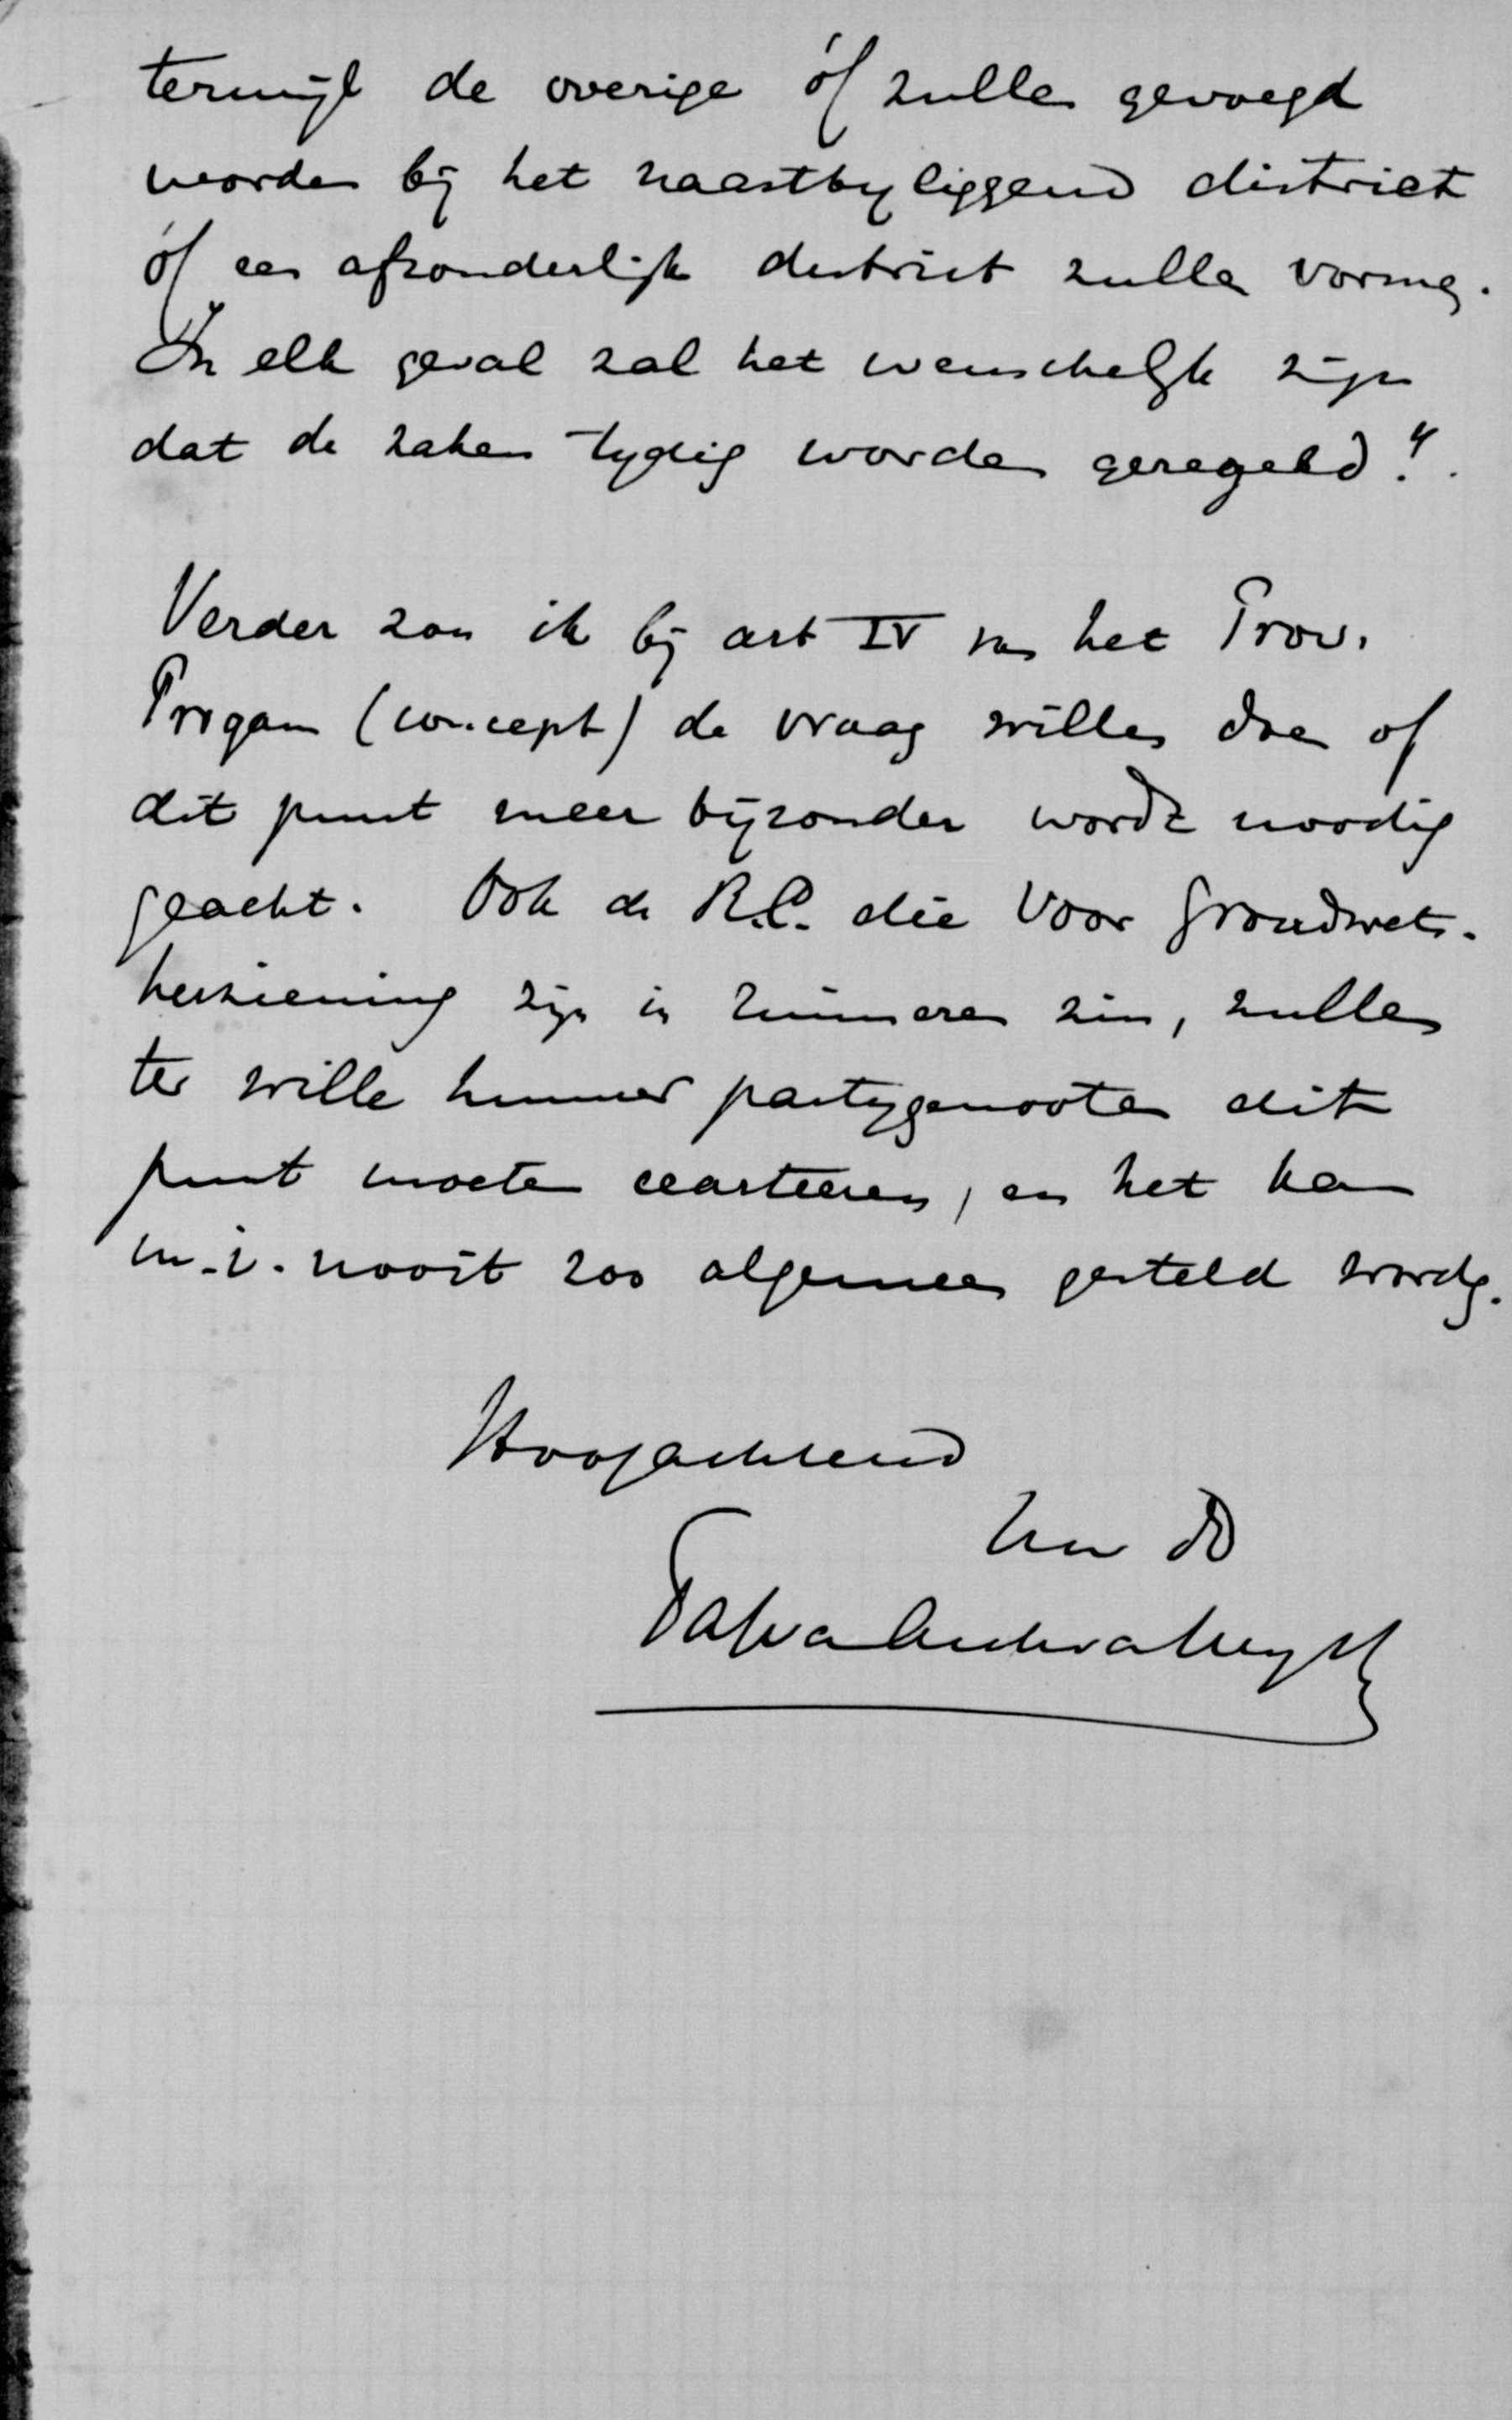 terwijl de overige óf zullen gevoegd
worden bij het naastbyliggend district
óf een afzonderlijk district zullen vormen.
In elk geval zal het wenschelijk zijn
dat de zaken tydig worden geregeld!".
Verder zou ik bij art IV van het Prov.
Progam (concept) de vraag willen doen of
dit punt meer bijzonder wordt noodig
geacht. Ook de R.C. die voor Grondwets-
herziening zijn in ruimeren zin, zullen
ter wille hunner partygenooten dit
punt moeten écarteeren, en het kan
m.i. nooit zoo algemeen gesteld worden.
Hoogachtend
Uw D